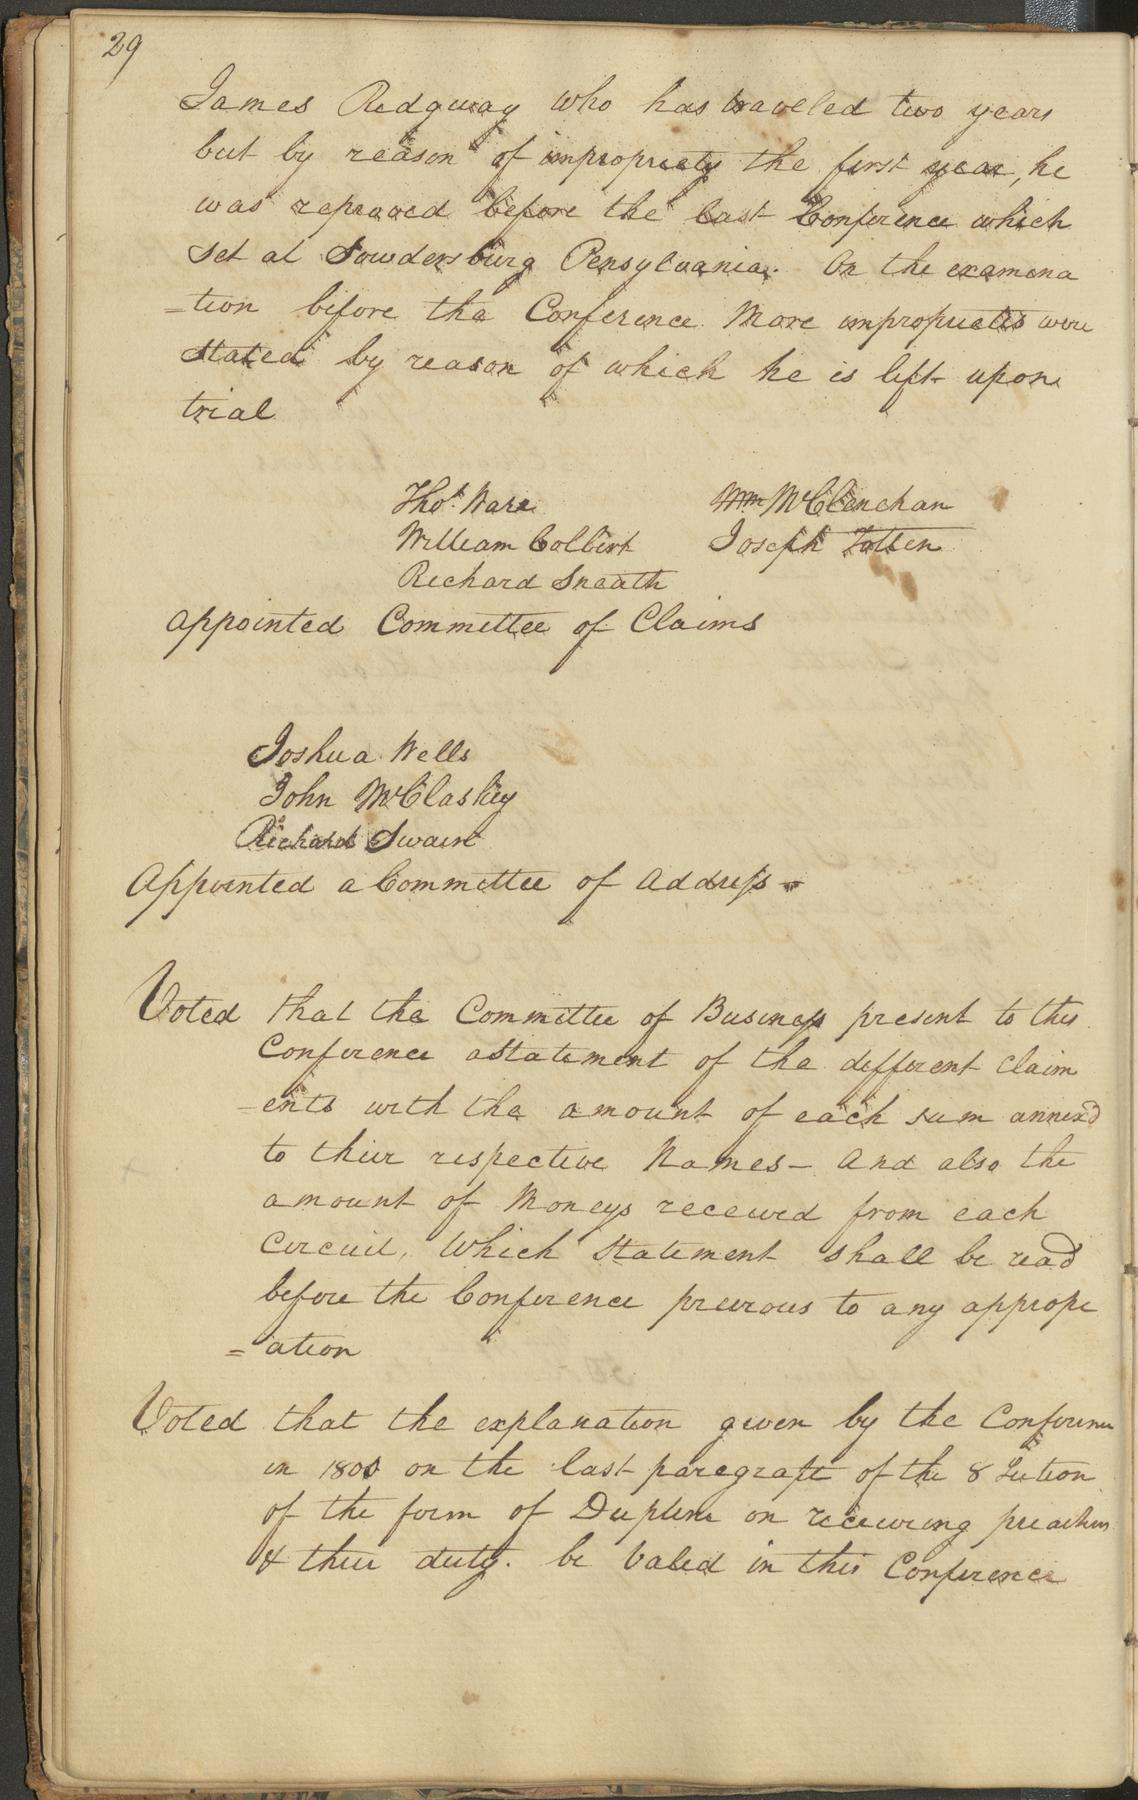 29
James Ridgway who has traveled two years
but by reason of impropriety the first year, he
was reproved before the last Conference which
set at Sowdersburg Pensylvania. On the examina
=tion before the Conference More improprieties were
stated by reason of which he is left upon
trial
Thos. Ware Wm McClenchan
William Colbert Joseph Totten
Richard Sneath
appointed Committee of Claims
Joshua Wells
John McClaskey
Richard Swain
Appointed a Committee of Address -
Voted that the Committee of Business present to this
Conference a Statement of the different Claim
=ents with the amount of each sum annexd
to their respective Names - And also the
amount of Moneys received from each
Circuit, Which Statement shall be read
before the Conference previous to any appropri
=ation
Voted that the explanation given by the Conference
in 1800 on the last paregraft of the 8 Section
of the form of Dicipline on receiving preachers
& their duty. be Valed in this Conference